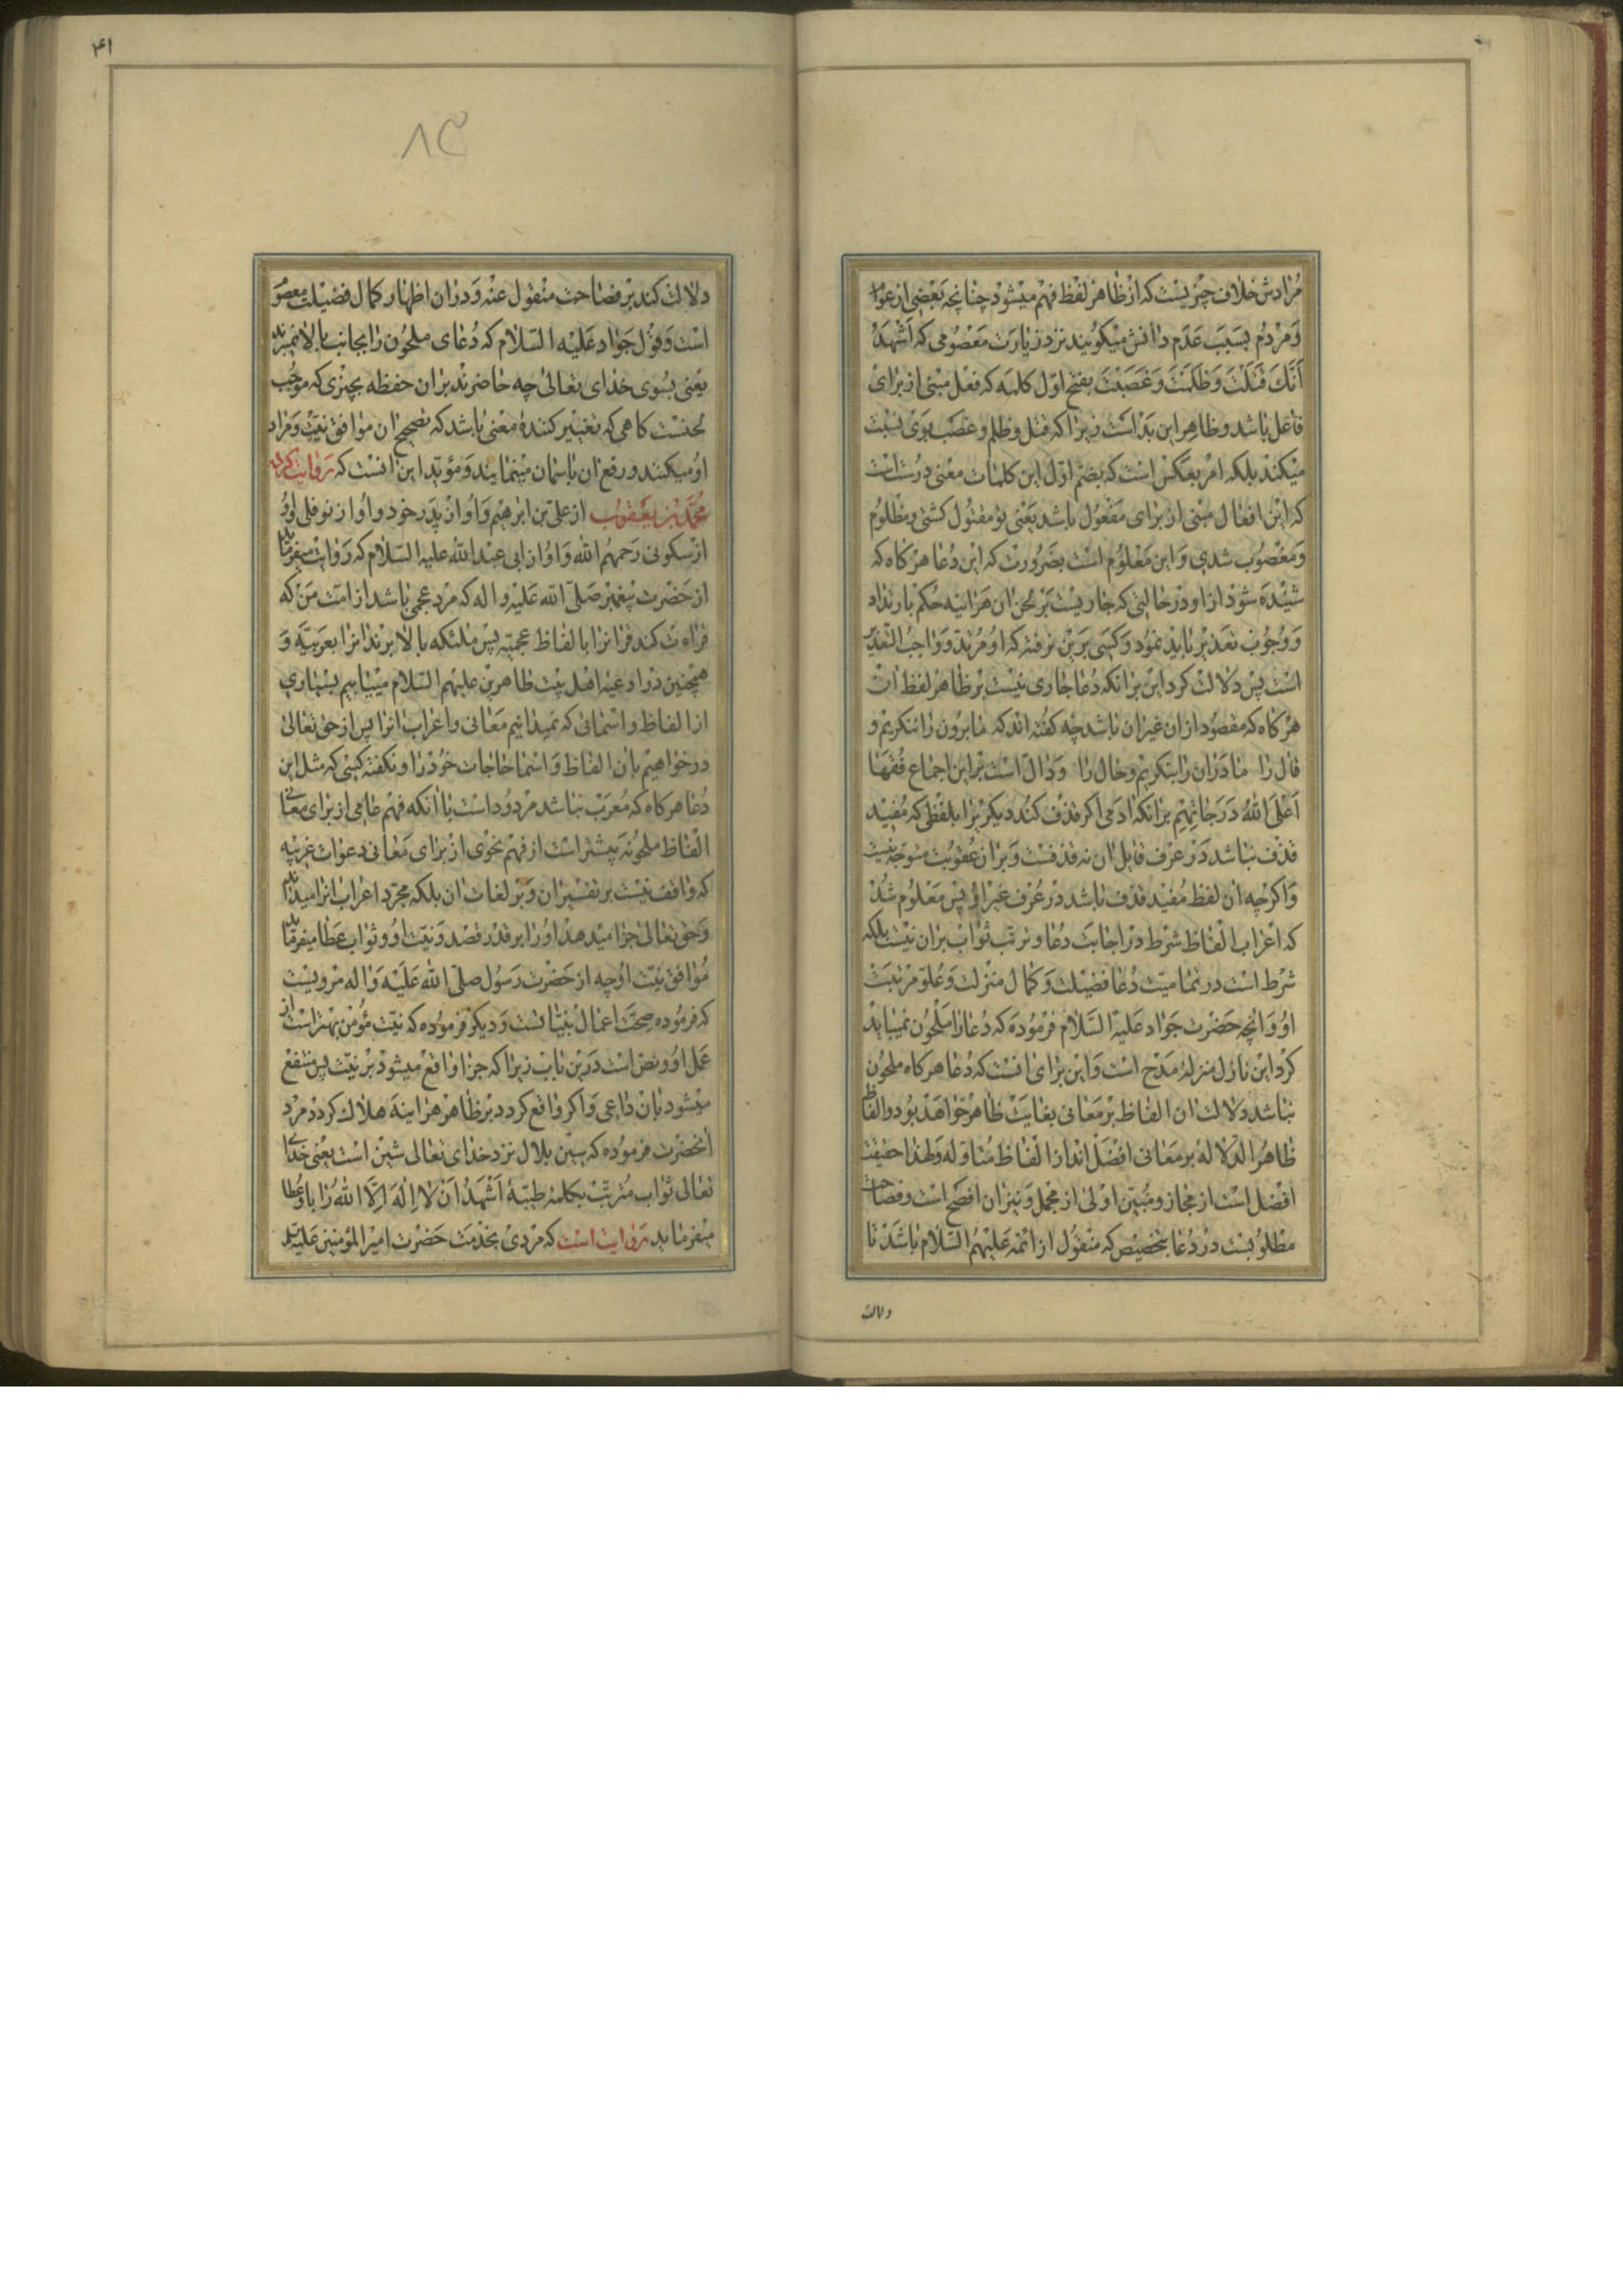 مرادش خلاف چیزیست که از ظاهر لفظ فهم میشود چنانچه بعضی از عوام
و مردم بسبب عدم دانش میکویند نزد زیارت معصومی که اشهد
أَنَّكَ قَتَلْتَ وَظَلَمْتَ وَغَصَبْتَ بفتح اول کلمه که فعل مبنی از برای
فاعل باشد و ظاهر این بد است زیرا که قتل و ظلم و غصب بوی نسبت
میکند بلکه امر بعکس است که بضم اول این کلمات معنی درست است
که این افعال مبنی از برای مفعول باشد یعنی تو مقتول کشتی و مظلوم
و مغصوب شدی و این معلوم است بضرورت که این دعا هرکاه که
شنیده شود از او در حالتی که جاریست بر لحن ان هراینه حکم بارتداد
و وجوب تعذیر باید نمود و کسی برین نرفته که او مرتد و واجب التعذیر
است پس دلالت کرد این برانکه دعا جاری نیست بر ظاهر لفظ ان
هرکاه که مقصود ازان غیر ان باشد چه کفته اند که ما برون را ننکریم و
قال را ما دران را بنکریم و حال را و دال است بر این اجماع فقها
اعلی الله درجاتهم برانکه ادمی اکر قذف کند دیکریرا بلفظی که مفید
قذف نباشد در عرف قایل ان نه قذفست و بران عقوبت متوجه نیست
و اکرچه ان لفظ مفید قذف باشد در عرف غیر او پس معلوم شد
که اعراب الفاظ شرط در اجابت دعا و ترتب ثواب بران نیست بلکه
شرط است در تمامیت دعا فضیلت و کمال منزلت و علو مرتبت
او و انچه حضرت جواد علیه السلام فرموده که دعا را ملحون نمیباید
کرد این نازل منزله مدح است و این برای انست که دعا هرکاه ملحون
نباشد دلالت ان الفاظ بر معانی بغایت ظاهر خواهد بود و الفاظ
ظاهر الدلاله بر معانی افضل اند از الفاظ متاوله و لهذا حقیقت
افضل است از مجاز و مبین اولی از مجمل و نیز ان افصح است و فصاحت
مطلوبست در دعا بتخصیص که منقول از ائمه علیهم السلام باشد تا
دلالت
۴۱
۸۵
دلالت کند بر فصاحت منقول عنه و دران اظهار کمال فضیلت معصوم
است و قول جواد علیه السلام که دعای ملحون را بجانب بالا نمیبرند
یعنی بسوی خدای تعالی چه حاضرند بران حفظه بچیزی که موجب
لحنست کاهی که تغییر کنندهٔ معنی باشد که تصحیح ان موافق نیت و مراد
او میکنند و رفع ان باسمان مینمایند و مؤید این انست که روایت کرده
محمد بن یعقوب از علی بن ابرهیم و او از پدر خود و او از نوفلی و او
از سکونی رحمهم الله و او از ابی عبد الله علیه السلام که روایت میفرماید
از حضرت پیغمبر صلی الله علیه و اله که مرد عجمی باشد از امت من که
قراءت کند قرانرا بالفاظ عجمیه پس ملئکه بالا برند انرا بعربیه و
همچنین در ادعیه اهل بیت طاهرین علیهم السلام مییابیم بسیاری
از الفاظ و اسمائی که نمیدانیم معانی و اعراب انرا پس از حق تعالی
درخواهیم بان الفاظ و اسما حاجات خود را و نکفته کسی که مثل این
دعا هرکاه که معرب نباشد مردود است با انکه فهم عامی از برای معانی
الفاظ ملحونه بیشتر است از فهم نحوی از برای معانی دعوات غریبه
که واقف نیست بر تفسیر ان و بر لغات ان بلکه مجرد اعراب انرا میداند
و حق تعالی جزا میدهد او را بر قدر قصد و نیت او و ثواب عطا میفرماید
موافق نیت او چه از حضرت رسول صلی الله علیه و اله مرویست
که فرموده صحت اعمال بنیاتست و دیکر فرموده که نیت مؤمن بهتر است از
عمل او و نص است درین باب زیرا که جزا واقع میشود بر نیت پس منتفع
میشود بان داعی و اکر واقع کردد بر ظاهر هراینه هلاک کردد مرد
انحضرت فرموده که سین بلال نزد خدای تعالی شین است یعنی خدای
تعالی ثواب مترتب بکلمهٔ طیبهٔ اَشْهَدُ اَنْ لا اِلٰهَ اِلَّا اللهُ را باو عطا
میفرماید روایت است که مردی بخدمت حضرت امیر المؤمنین علیه